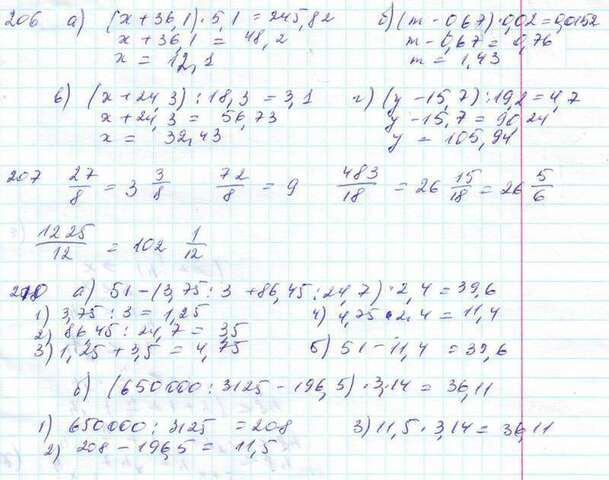 206 а) (x+36,1)·5,1 = 245,82 б) (m-0,67)·0,02=0,0152
x+36,1 = 48,2 m-0,67= 0,76
x = 12,1 m = 1,43
в) (x+24,3):18,3=3,1 г) (y-15,7):19,2=4,7
x+24,3 = 56,73 y-15,7=90,24
x = 32,43 y = 105,94
207 27/8 = 3 3/8 72/8 = 9 483/18 = 26 15/18 = 26 5/6
1225/12 = 102 1/12
210 а) 51-(3,75:3+86,45:24,7)·2,4=39,6
1) 3,75:3=1,25 4) 4,75·2,4=11,4
2) 86,45:24,7= 35
3) 1,25+3,5=4,75 б) 51-11,4 =39,6
б) (650000:3125-196,5)·3,14= 36,11
1) 650000:3125 =208 3) 11,5·3,14= 36,11
2) 208-196,5= 11,5